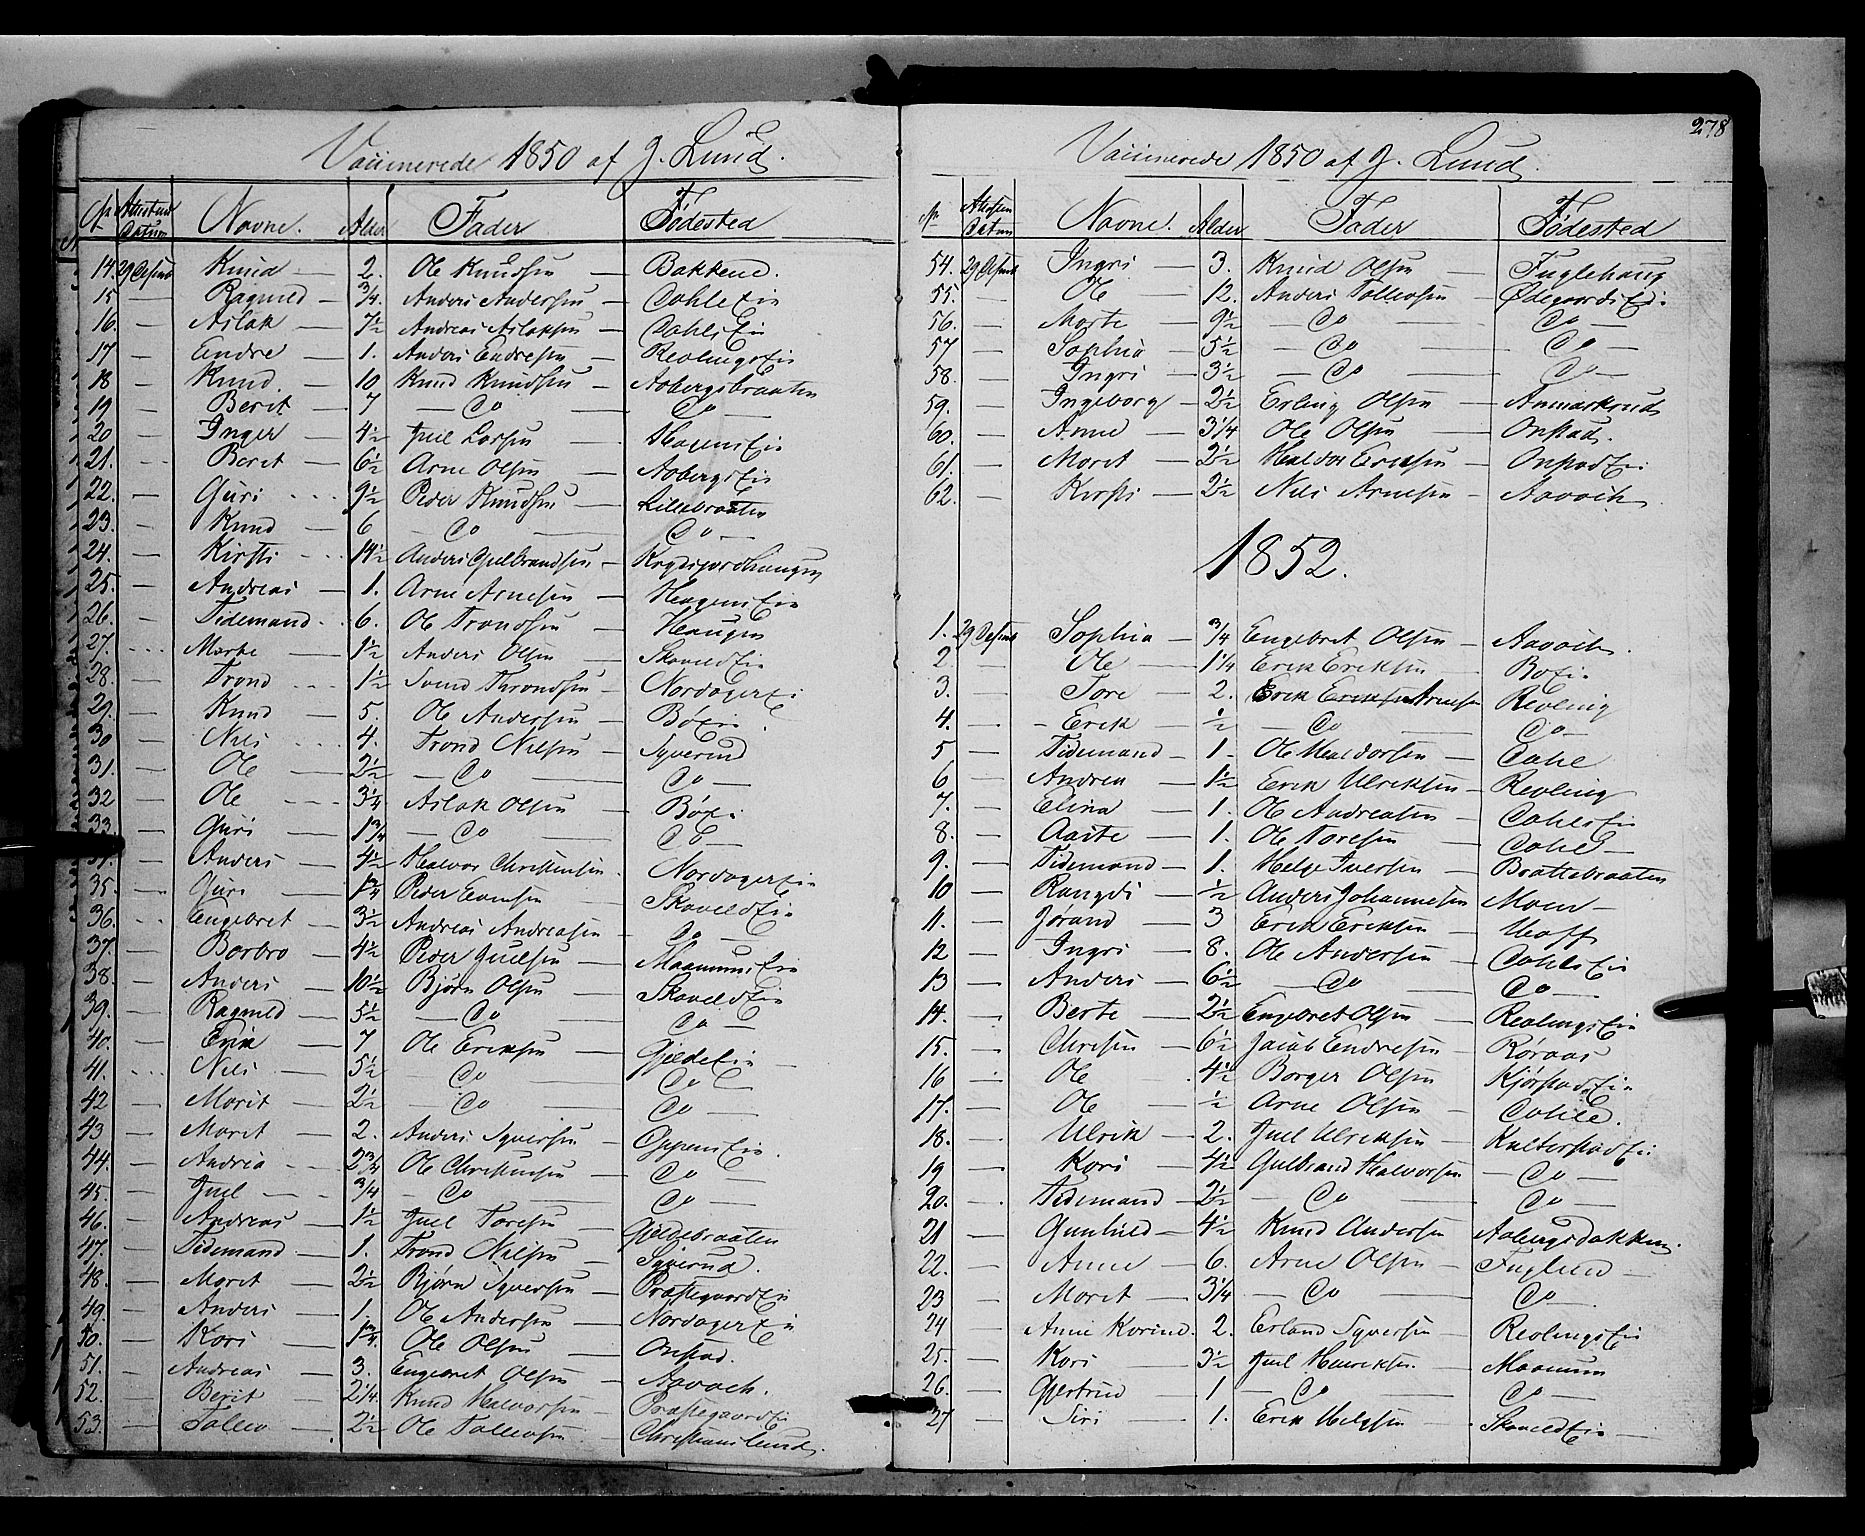 Vaccinerede 1850 af J. Lund.
No Attestens Datum Navne. Alder Fader Fødested
14. 29 Desemb Knud — 2. Ole Knudsen — Bakkene.
15 — Ragnild — 3/4. Anders Andersen — DahlsEie
16. — Aslak — 7 1/2 Andreas Aslaksen — DahlsEie
17 — Endre — 1. Anders Endresen — RevlingsEie
18 — Knud. — 10 Knud Knudsen — Aabergsbraaten
19 — Berit — 7 — Do — Do —
20 — Inger — 4 1/2 Juel Larsen — HagensEie
21. — Berit — 6 1/2 Arne Olsen — AabergsEie
22. — Guri — 9 1/2 Peder Knudsen — Lillebraaten
23. — Knud — 6 — Do — Do —
24. — Kirsti — 14 1/2 Anders Gulbrandsen —
25. — Andreas — 1. Arne Arnesen — HagensEie
26. — Tidemand — 6. Ole Trondsen — Haugen
27. — Marte — 1 1/2 Anders Olsen — SkaveldEie
28. — Trond — 1 1/2 Svend Throndsen — NordagerEie
29. — Knud — 5. Ole Andersen — BøEie
30 — Nils — 4. Trond Nilsen — Syverud
31. — Ole — 2 1/2 — Do — Do —
32 — Ole — 3 1/4 Aslak Olsen — BøEie
33. — Guri — 1 3/4 — Do — Do —
34. — Anders — 4 1/2 Halvor Christensen — NordagerEie
35. — Guri — 1 3/4 Peder Evensen — SkaveldEie
36. — Engebret — 3 1/2 Andreas Andreasen — Do —
37. — Barbro — 4 1/2 Peder Juelsen — MaanumsEie
38. — Anders — 10 1/2 Bjørn Olsen — SkaveldEie
39. — Ragnild — 5 1/2 — Do — Do —
40. — Erik — 7 Ole Eriksen — GjeldeEie
41. — Nils — 5 1/2 — Do — Do —
42 — Marit — 2 1/2 — Do — Do —
43 — Marit — 2. Anders Syversen —
44. — Andrea — 2 3/4 Ole Christensen — Do —
45. — Juel — 3/4 — Do — Do —
46. — Andreas — 1 1/2 Juel Toresen — Gjeldebraaten
47. — Tidemand — 1. Trond Nilsen — Syverud.
48. — Marit — 2 1/2 Bjørn Syversen — PræstegaardEie
49. — Anders — 1. Ole Andersen — NordagerEie
50. — Kari — 1 3/4. Ole Olsen — Onstad.
51. — Andreas — 3. Engebret Olsen — Aavach.
52. — Berit — 2 1/4. Knud Halvorsen — PræstegaardEie
53. — Tollev — 2 1/2 Ole Tollevsen — Christianslund.
278
Vaccinerede 1850 af J. Lund.
No Attestens Datum Navne. Alder Fader Fødested
54. 29 Desemb Ingri — 3. Knud Olsen — Fuglehaug
55. — Ole — 12. Anders Tollevsen — ØdegaardsEie
56. — Marte — 9 1/2 — Do — Do —
57 — Sophia — 5 1/2 — Do — Do —
58. — Ingri — 3 1/2 — Do — Do —
59. — Ingeborg — 2 1/2 Erling Olsen — Anmarkrud
60. — Anne — 3 1/4 Ole Olsen — Onstad.
61. — Marit — 2 1/2 Halvor Eriksen — OnstadEie
62. — Kirsti — 2 1/2 Nils Arnesen — Aavach
1852.
1. 29 Desemb Sophia — 3/4 Engebret Olsen — Aavach.
2. — Ole — 1 1/4 Erik Eriksen — BøEie
3. — Tore — 2. Erik Eriksen Arnesen Revling
4. — Erik — 1/2 — Do — Do —
5 — Tidemand — 1. Ole Haldorsen — Dahl
6 — Andrea — 1 1/2 Erik Ulriksen — Revling
7. — Elina — 1. Ole Andreasen — DahlsEie
8. — Aaste — 1. Ole Toresen — Dahl —
9. — Tidemand — 1. Helge Iversen — Brattebraaten
10 — Rangdi — 1/2 Anders Johannesen Moen —
11. — Jorand — 3 Erik Eriksen — Hoff
12 — Ingri — 8. Ole Andersen — DahlsEie
13 — Anders — 6 1/2 — Do — Do —
14. — Berte — 2 1/2 Engebret Olsen — RevlingsEie
15. — Christen — 6 1/2 Jacob Endresen — Røraas
16 — Ole — 4 1/2 Borger Olsen KjørstadEie
17. — Ole — 1/2 Arne Olsen — Dahle.
18. — Ulrik — 2. Juel Ulriksen — KulterstadEie
19 — Kari — 4 1/2 Gulbrand Halvorsen — Do —
20. — Tidemand — 2 1/2 — Do — Do —
21 — Gunhild — 4 1/2 Knud Andersen Aabergsbakken.
22. — Anne — 6. Arne Olsen — Fuglelien —
23 — Marit — 3 1/4 — Do — Do —
24 — Anne Karine. 2. Erland Syversen — RevlingsEie
25. — Kari — 3 1/2 Juel Henriksen. — Maanum
26 — Gjertrud — 1 — Do — Do —
27 — Siri — 1. Erik Helgesen — SkaveldEie —